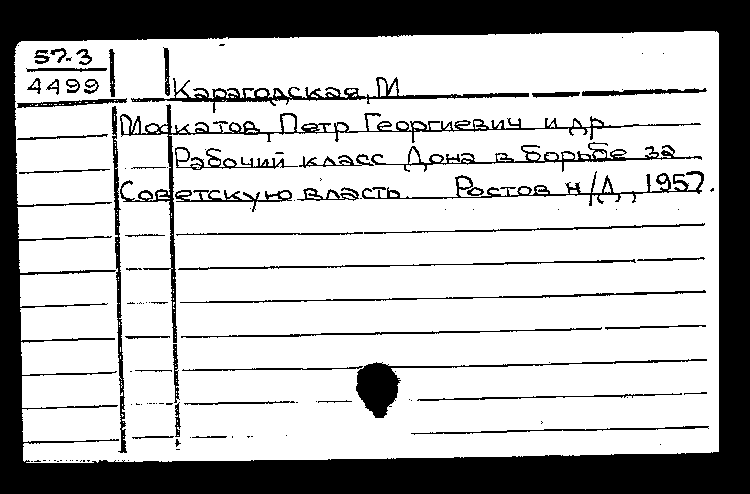 57-3
4499
Карагодская, М
Москатов, Петр Георгиевич и др
Рабочий класс Дона в борьбе за
Советскую власть. Ростов н/Д, 1957.